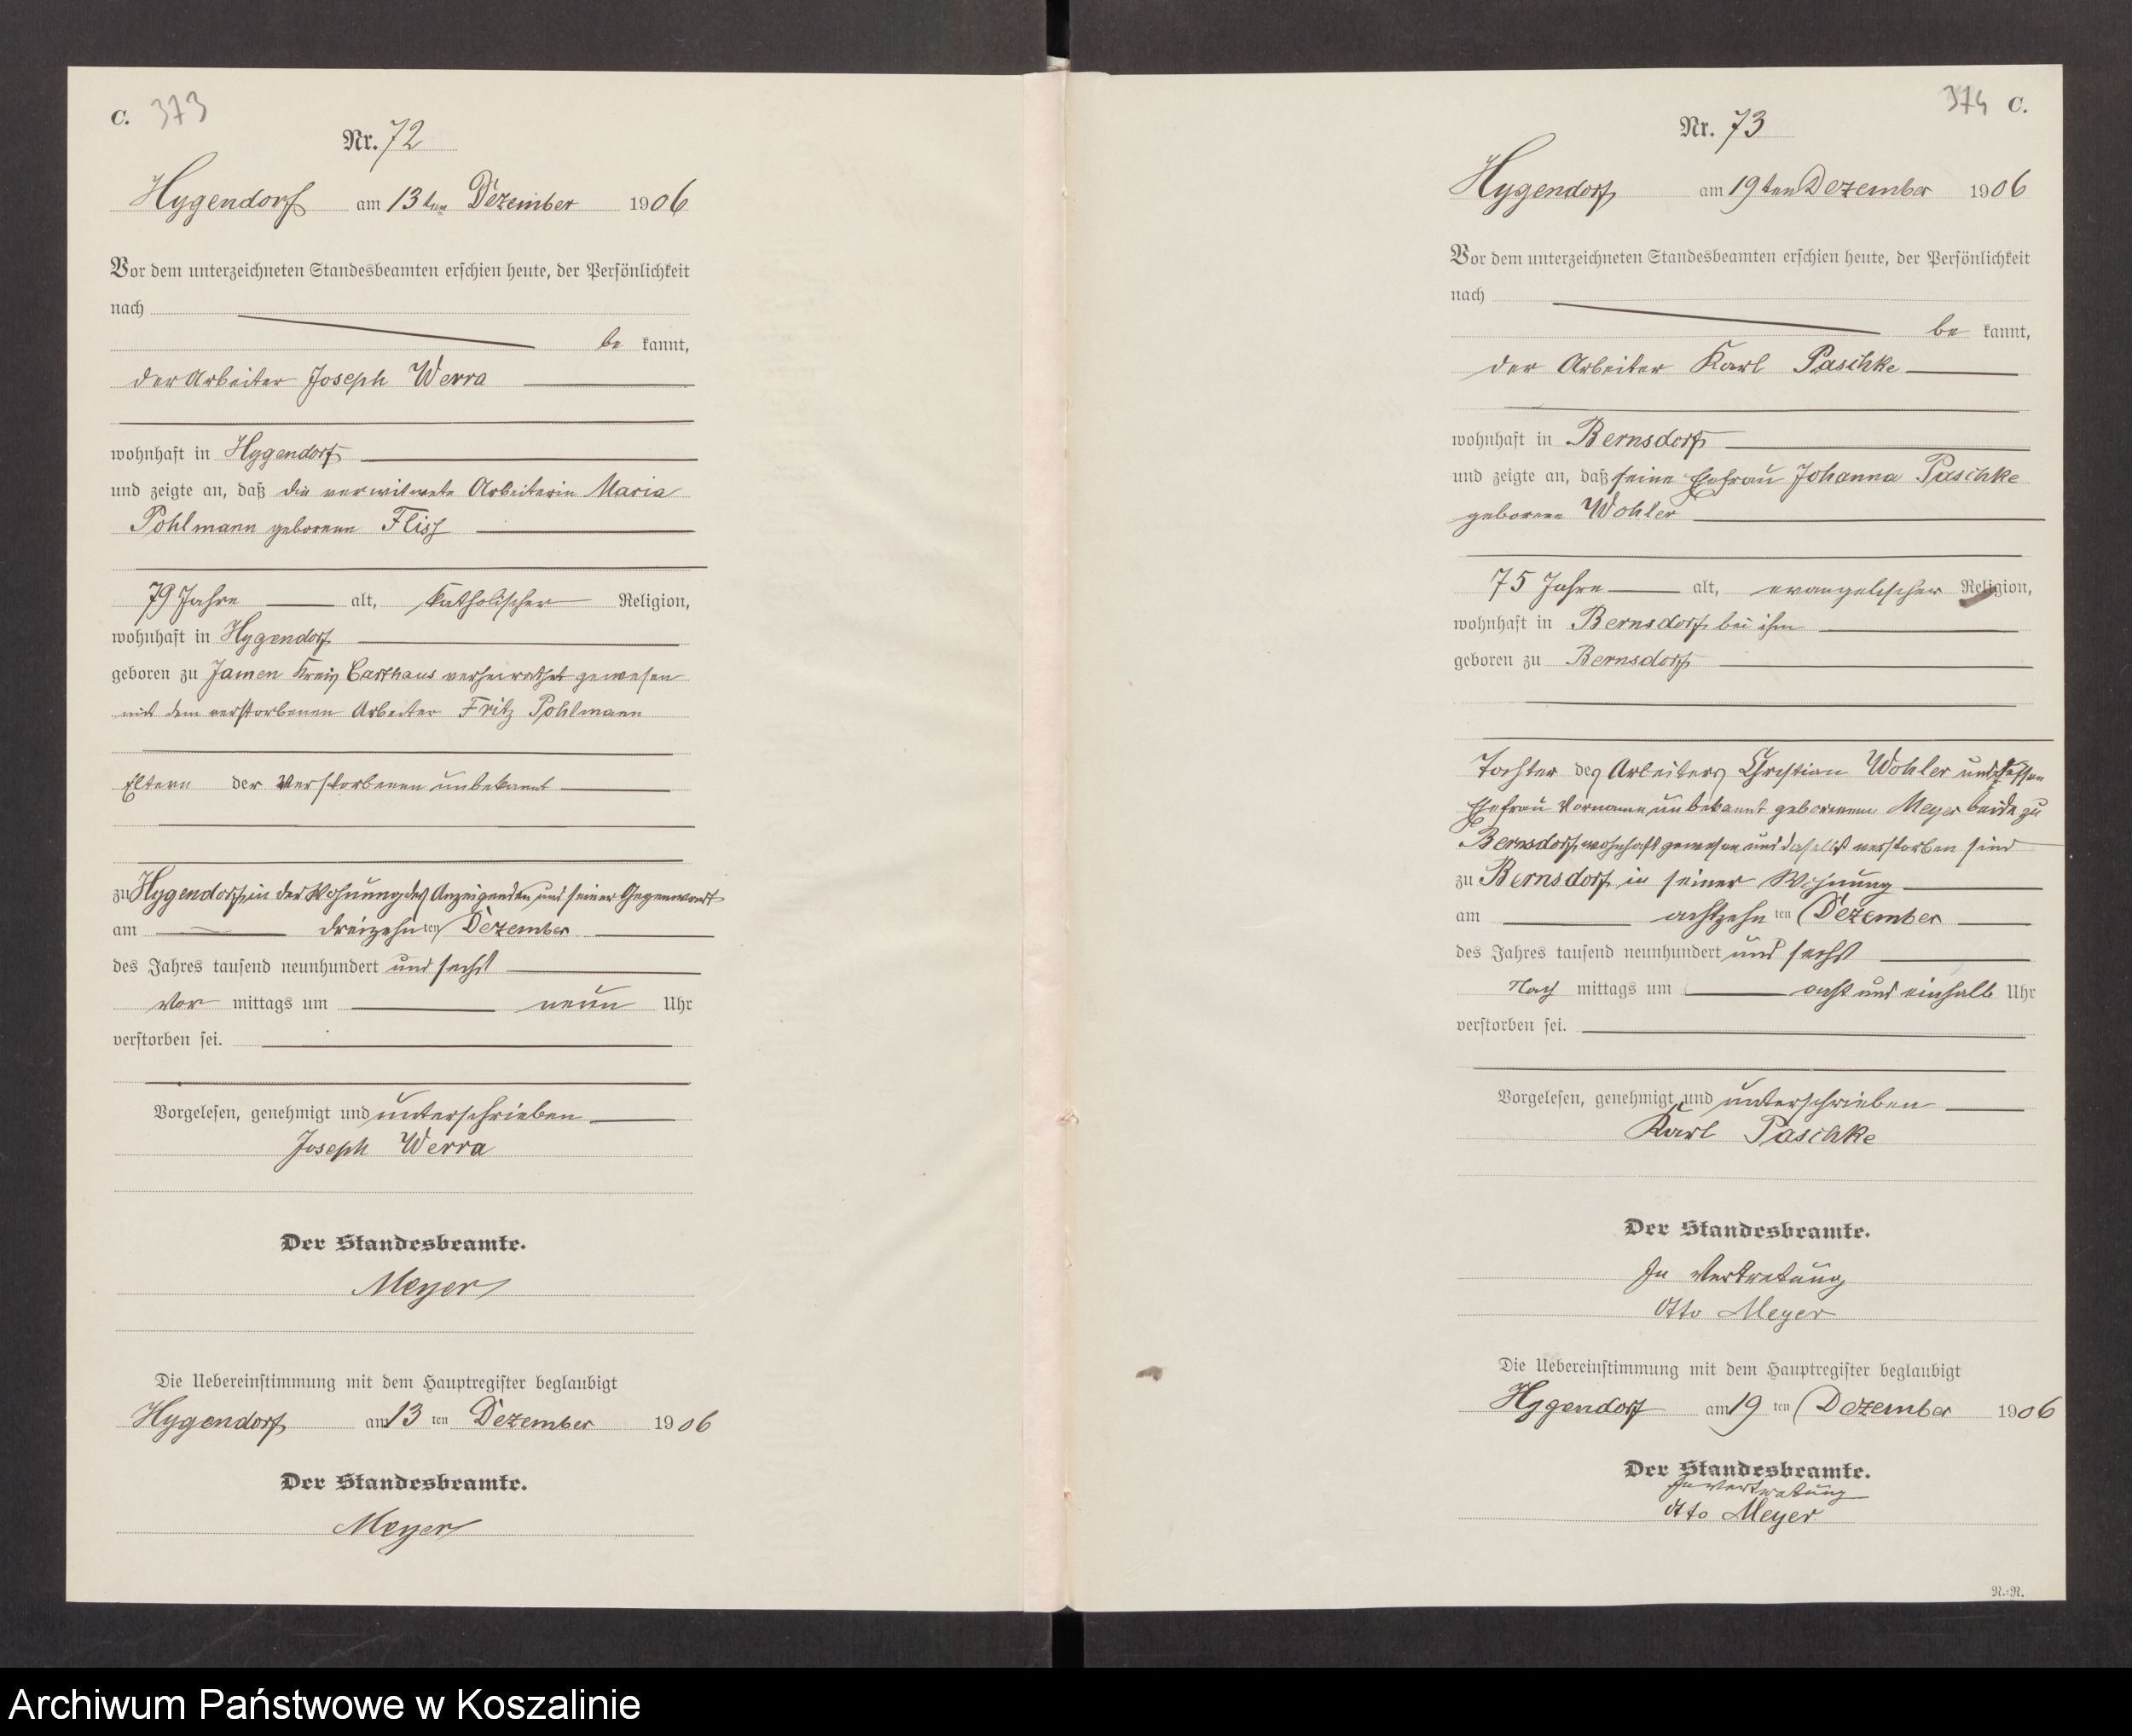 C. 373
Nr. 72
Hygendorf am 13ten Dezember 1906
Vor dem unterzeichneten Standesbeamten erschien heute, der Persönlichkeit
nach
be kannt,
der Arbeiter Joseph Werra
wohnhaft in Hygendorf
und zeigte an, daß die verwitwete Arbeiterin Maria
Pohlmann geborene Fliss
79 Jahre alt, katholischer Religion,
wohnhaft in Hygendorf
geboren zu Jamen Kreis Carthaus verheirathet gewesen
mit dem verstorbenen Arbeiter Fritz Pohlmann
Eltern der Verstorbenen unbekannt
zu Hygendorf, in der Wohnung des Anzeigenden und seiner Gegenwart
am dreizehnten Dezember
des Jahres tausend neunhundert und sechs
Vor mittags um neun Uhr
verstorben sei.
Vorgelesen, genehmigt und unterschrieben
Joseph Werra
Der Standesbeamte.
Meyer
Die Uebereinstimmung mit dem Hauptregister beglaubigt
Hygendorf am 13 ten Dezember 1906
Der Standesbeamte.
Meyer
374 C.
Nr. 73
Hygendorf am 19ten Dezember 1906
Vor dem unterzeichneten Standesbeamten erschien heute, der Persönlichkeit
nach
be kannt,
der Arbeiter Karl Paschke
wohnhaft in Bernsdorf
und zeigte an, daß seine Ehefrau Johanna Paschke
geborene Wohler
75 Jahre alt, evangelischer Religion,
wohnhaft in Bernsdorf bei ihm
geboren zu Bernsdorf
Tochter des Arbeiters Christian Wohler und dessen
Ehefrau Vorname unbekannt geborenen Meyer beide zu
Bernsdorf, wohnhaft gewesen und daselbst verstorben sind
zu Bernsdorf in seiner Wohnung
am achtzehn ten Dezember
des Jahres tausend neunhundert und sechs
Nach mittags um acht und einhalb Uhr
verstorben sei.
Vorgelesen, genehmigt und unterschrieben
Karl Paschke
Der Standesbeamte.
In Vertretung
Otto Meyer
Die Uebereinstimmung mit dem Hauptregister beglaubigt
Hygendorf am 19 ten Dezember 1906
Der Standesbeamte.
In Vertretung
Otto Meyer
N.=N.
Archiwum Państwowe w Koszalinie